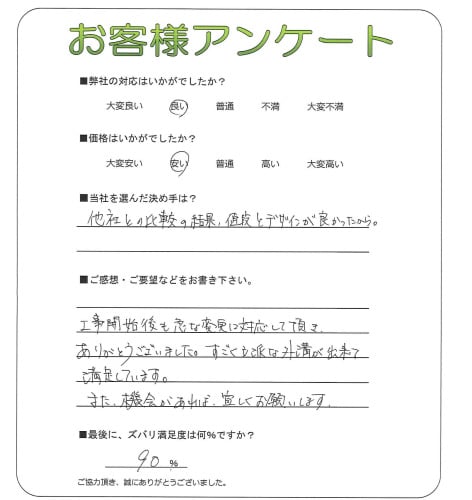 お客様アンケート
■弊社の対応はいかがでしたか？
大変良い 良い 普通 不満 大変不満
■価格はいかがでしたか？
大変安い 安い 普通 高い 大変高い
■当社を選んだ決め手は？
他社との比較の結果、値段とデザインが良かったから。
■ご感想・ご要望などをお書き下さい。
工事開始後も急な変更に対応して頂き
ありがとうございました。すごく立派な外溝が出来て
満足しています。
また、機会があれば、宜しくお願いします。
■最後に、ズバリ満足度は何％ですか？
90 ％
ご協力頂き、誠にありがとうございました。